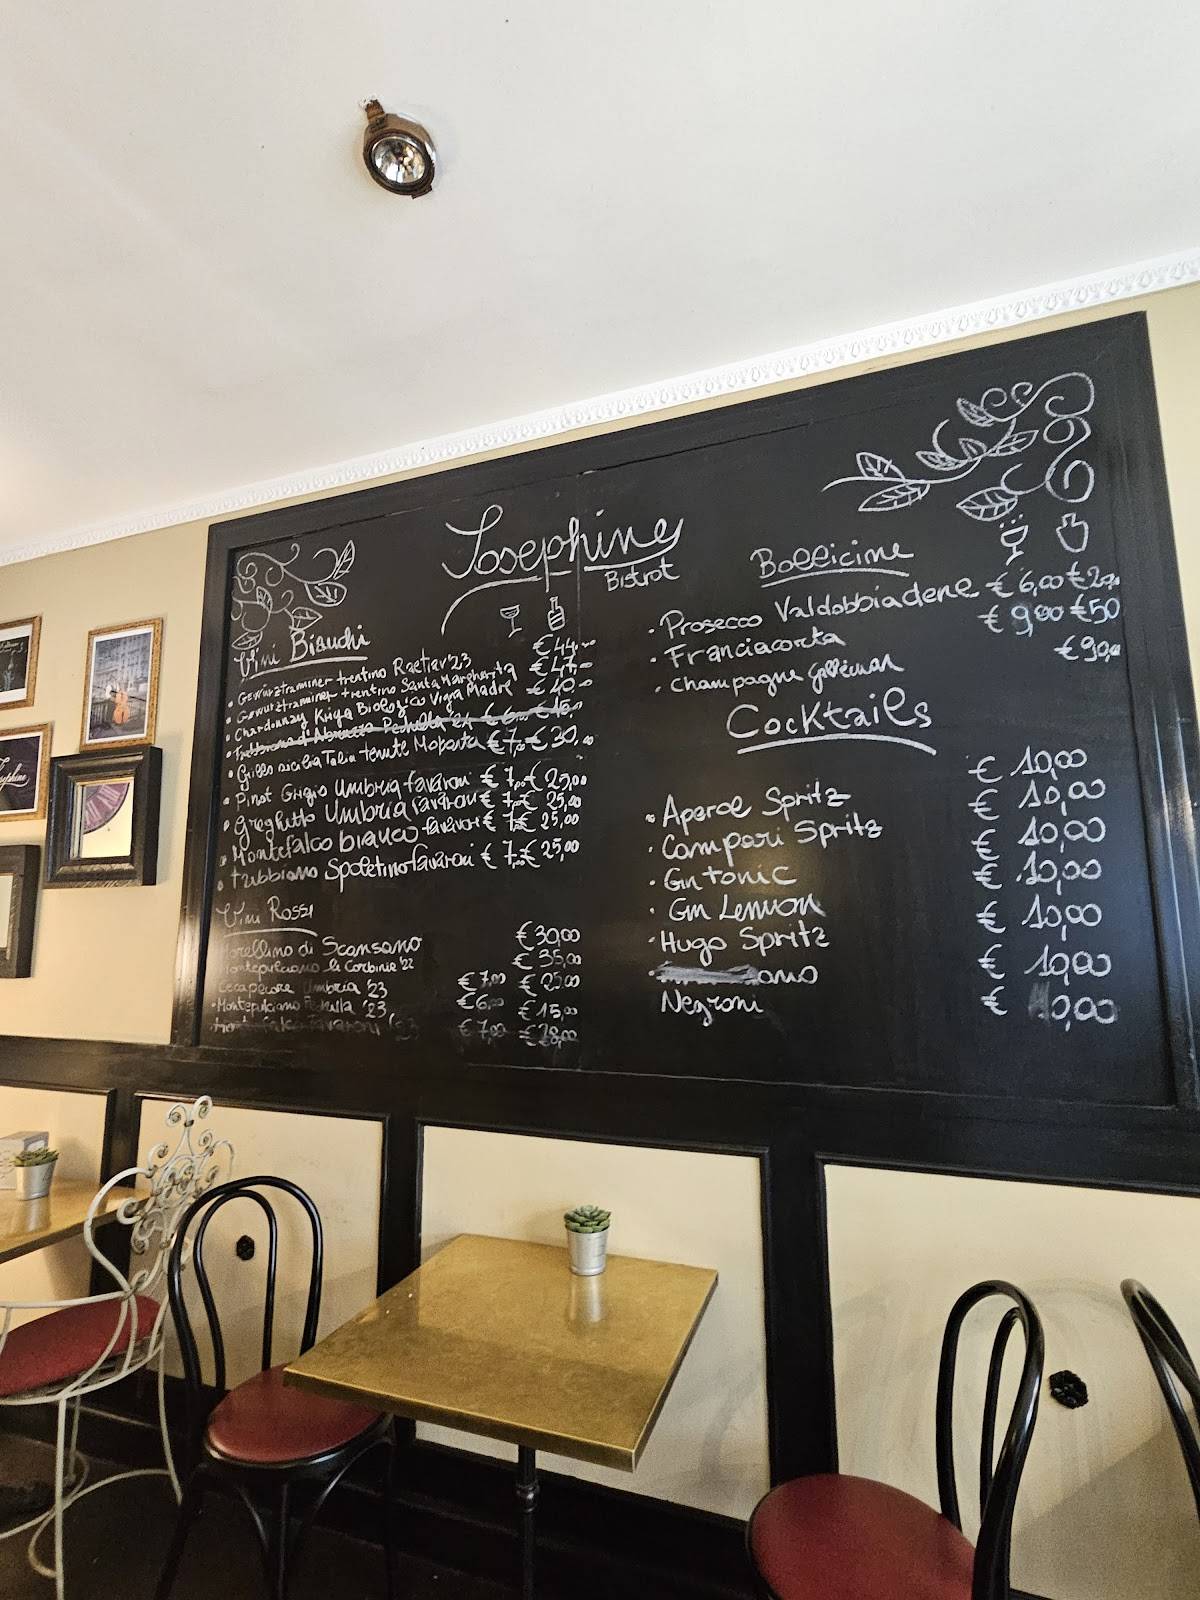 Josephine
Bistrot
Vini Bianchi
• Gewürztraminer trentino Raetiar '23 € 44,00
• Gewürztraminer trentino Santa Margherita € 47,00
• Chardonnay Biologico Vigna Madre € 40,00
• Trebbiano d'Abruzzo '21 € 6,00 € 15,00
• Grillo sicilia tenute Moporta € 7,00 € 30,00
• Pinot Grigio Umbria favaroni € 7,00 € 25,00
• Greghetto Umbria favaroni € 7,00 € 25,00
• Montefalco bianco favaroni € 7,00 € 25,00
• trebbiano Spoletino favaroni € 7,00 € 25,00
Vini Rossi
Morellino di Scansano € 30,00
Montepulciano le Corbinie '22 € 35,00
Umbria '23 € 7,00 € 25,00
• Montepulciano '23 € 6,00 € 15,00
favaroni '23 € 7,00 € 28,00
Bollicine
• Prosecco Valdobbiadene € 6,00 € 29,00
• Franciacorta € 9,00 € 50
• Champagne € 90,00
Cocktails
• Aperol Spritz € 10,00
• Campari Spritz € 10,00
• Gin tonic € 10,00
• Gin Lemon € 10,00
• Hugo Spritz € 10,00
ano € 10,00
Negroni € 0,00
Josephine